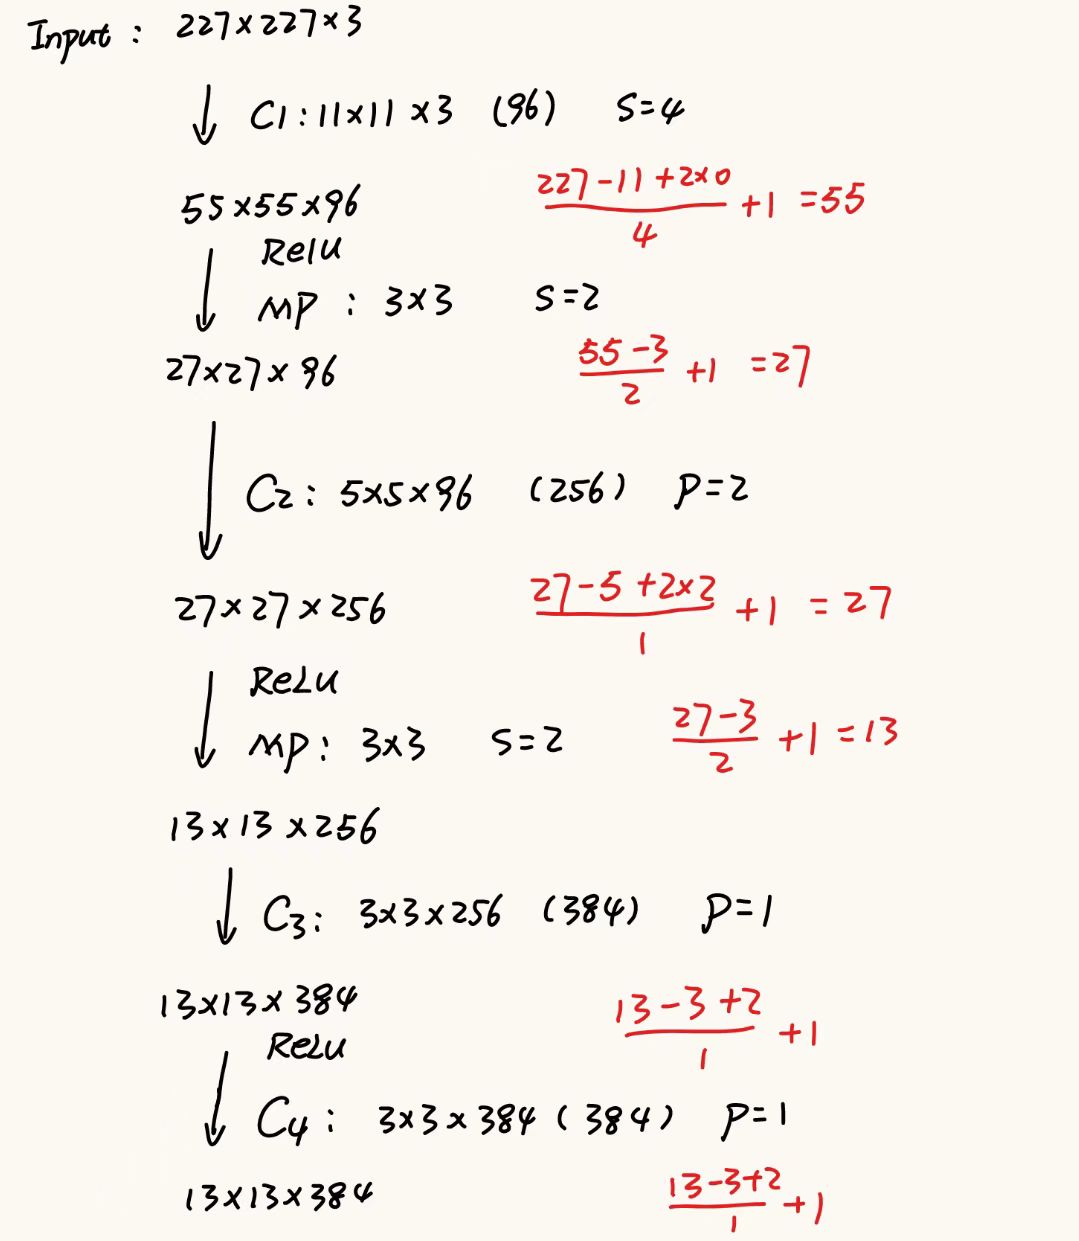 Input : 227×227×3
↓ C1 : 11×11×3 (96) S=4
55×55×96 (227-11+2×0)/4 +1 =55
Relu
↓ MP : 3×3 S=2
27×27×96 (55-3)/2 +1 =27
↓ C2 : 5×5×96 (256) P=2
27×27×256 (27-5+2×2)/1 +1 =27
ReLU
↓ MP : 3×3 S=2 (27-3)/2 +1 =13
13×13×256
↓ C3 : 3×3×256 (384) P=1
13×13×384 (13-3+2)/1 +1
ReLU
↓ C4 : 3×3×384 (384) P=1
13×13×384 (13-3+2)/1 +1